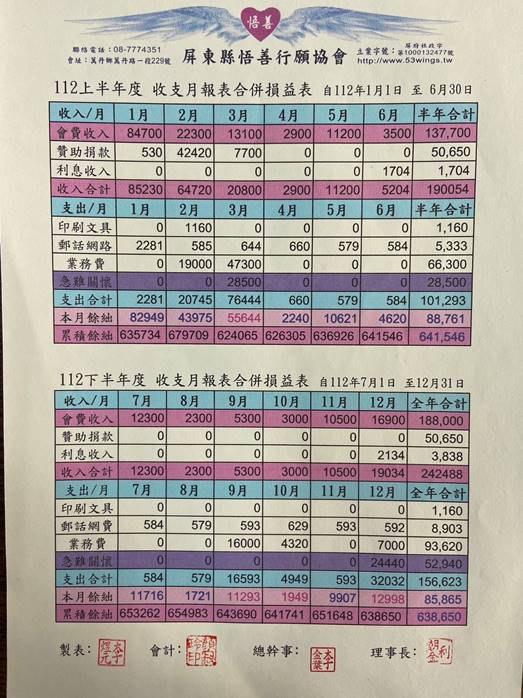 悟善
聯絡電話：08-7774351
會址：萬丹鄉萬丹路一段229號
屏東縣悟善行願協會
屏府社政字
立案字號：第1000132477號
http://www.53wings.tw
112上半年度 收支月報表合併損益表 自112年1月1日 至 6月30日
收入/月 1月 2月 3月 4月 5月 6月 半年合計
會費收入 84700 22300 13100 2900 11200 3500 137,700
贊助捐款 530 42420 7700 0 0 0 50,650
利息收入 0 0 0 0 0 1704 1,704
收入合計 85230 64720 20800 2900 11200 5204 190054
支出/月 1月 2月 3月 4月 5月 6月 半年合計
印刷文具 0 1160 0 0 0 0 1,160
郵話網路 2281 585 644 660 579 584 5,333
業務費 0 19000 47300 0 0 0 66,300
急難關懷 0 0 28500 0 0 0 28,500
支出合計 2281 20745 76444 660 579 584 101,293
本月餘絀 82949 43975 55644 2240 10621 4620 88,761
累積餘絀 635734 679709 624065 626305 636926 641546 641,546
112下半年度 收支月報表合併損益表 自112年7月1日 至12月31日
收入/月 7月 8月 9月 10月 11月 12月 全年合計
會費收入 12300 2300 5300 3000 10500 16900 188,000
贊助捐款 0 0 0 0 0 0 50,650
利息收入 0 0 0 0 0 2134 3,838
收入合計 12300 2300 5300 3000 10500 19034 242488
支出/月 7月 8月 9月 10月 11月 12月 全年合計
印刷文具 0 0 0 0 0 0 1,160
郵話網費 584 579 593 629 593 592 8,903
業務費 0 0 16000 4320 0 7000 93,620
急難關懷 0 0 0 0 0 24440 52,940
支出合計 584 579 16593 4949 593 32032 156,623
本月餘絀 11716 1721 11293 1949 9907 12998 85,865
累積餘絀 653262 654983 643690 641741 651648 638650 638,650
製表： 會計： 總幹事： 理事長：